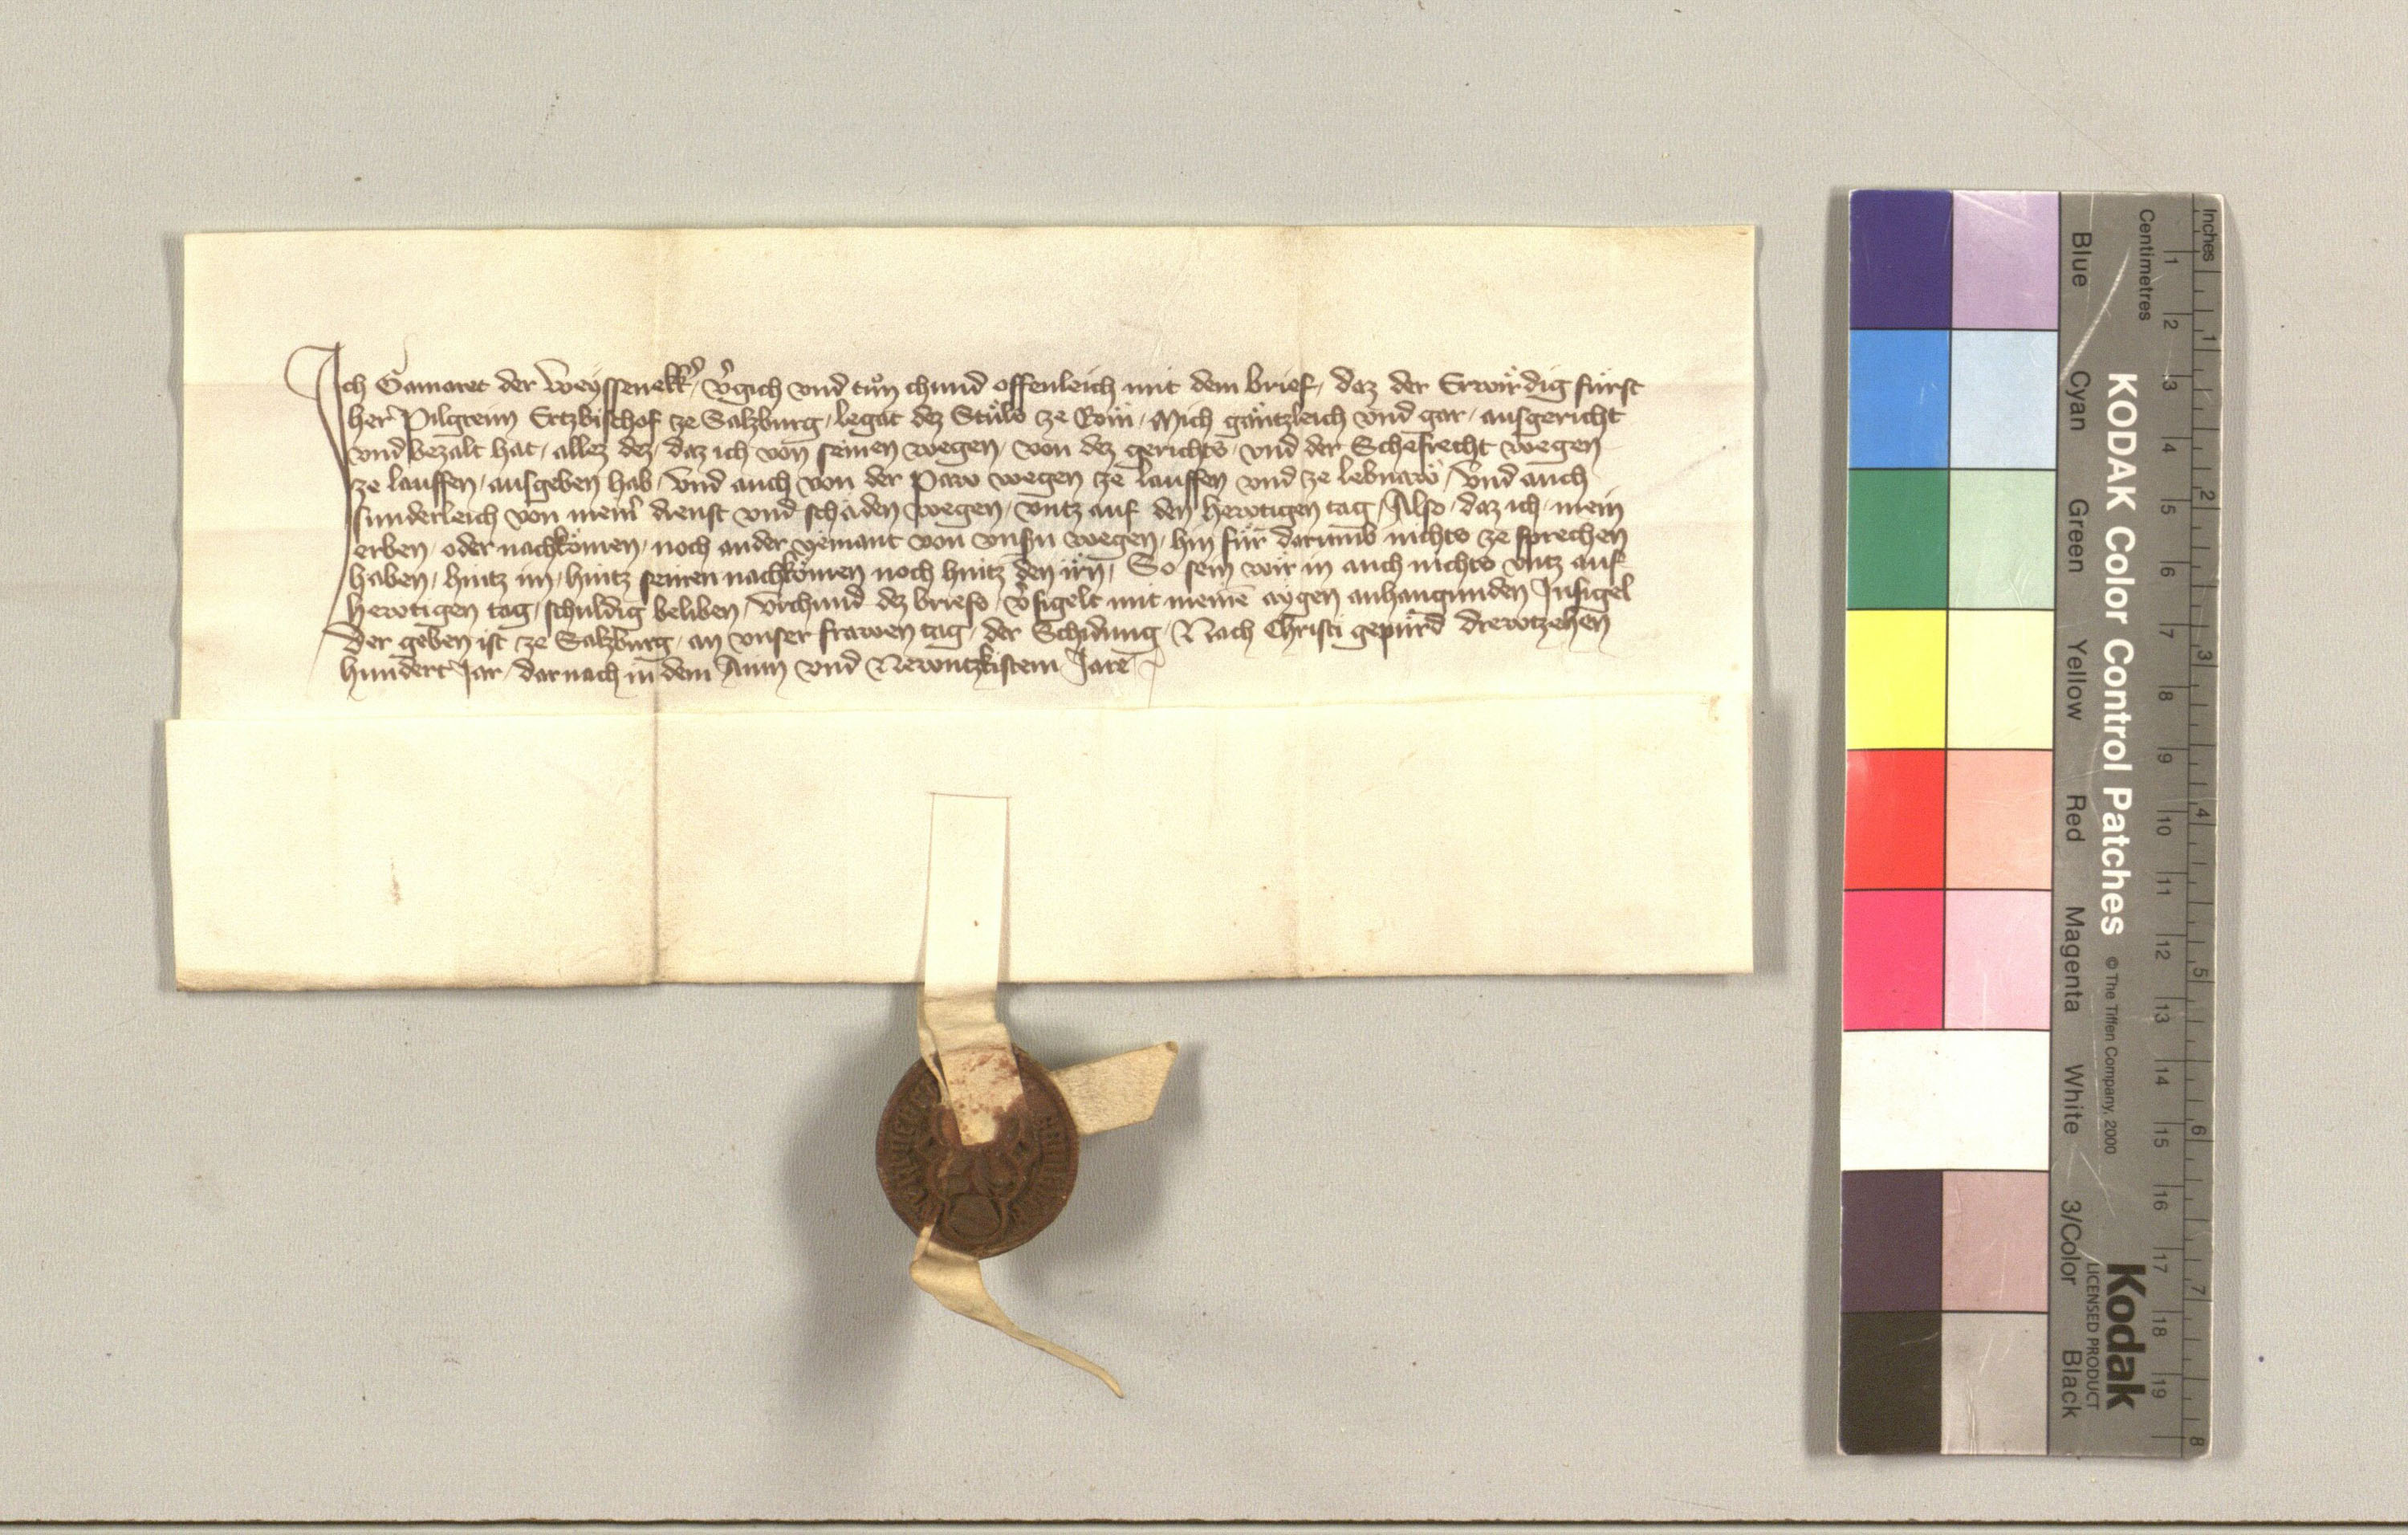 Ich Gamaret der Weyssenekk̾, v̾gich vnd tuͦn chund offenleich mit dem brief, daz der Erwirdig fürst
her Pilgreim Ertzbischof ze Salzburg, legat dez Stuͤls ze Rom, Mich gäntzleich vnd gar, ausgericht
vnd bezalt hat, allez dez, daz ich von seinen wegen, von dez gerichts, vnd der Schefrecht wegen
ze lauffen, ausgeben hab, vnd auch von der Paw wegen ze lauffen vnd ze lebnaw, vnd auch
sunderleich von meim dienst vnd schäden wegen, vntz auf den hewtigen tag, Also, daz ich, mein
erben, oder nachkömen, noch ander yemant von vnsn wegen, hin für darumb nichts ze sprechen
haben, hintz im, hintz seinen nachkömen noch hintz den irn, So sein wir in auch nichts vntz auf
hewtigen tag, schuldig beliben, vrchund dez briefs, v̾sigelt mit meinē aygen anhangunden Insigel
Der geben ist ze Salzburg, an vnser frawen tag, der Schidung, Nach Christi gepürd drewtzehen
hundert Jar, darnach in dem Ainn vnd Newntzkistem Jare
Inches
Centimetres
1 2 3 4 5 6 7 8 9 10 11 12 13 14 15 16 17 18 19
1 2 3 4 5 6 7 8
KODAK Color Control Patches © The Tiffen Company, 2000 Kodak
LICENSED PRODUCT
Blue Cyan Green Yellow Red Magenta White 3/Color Black